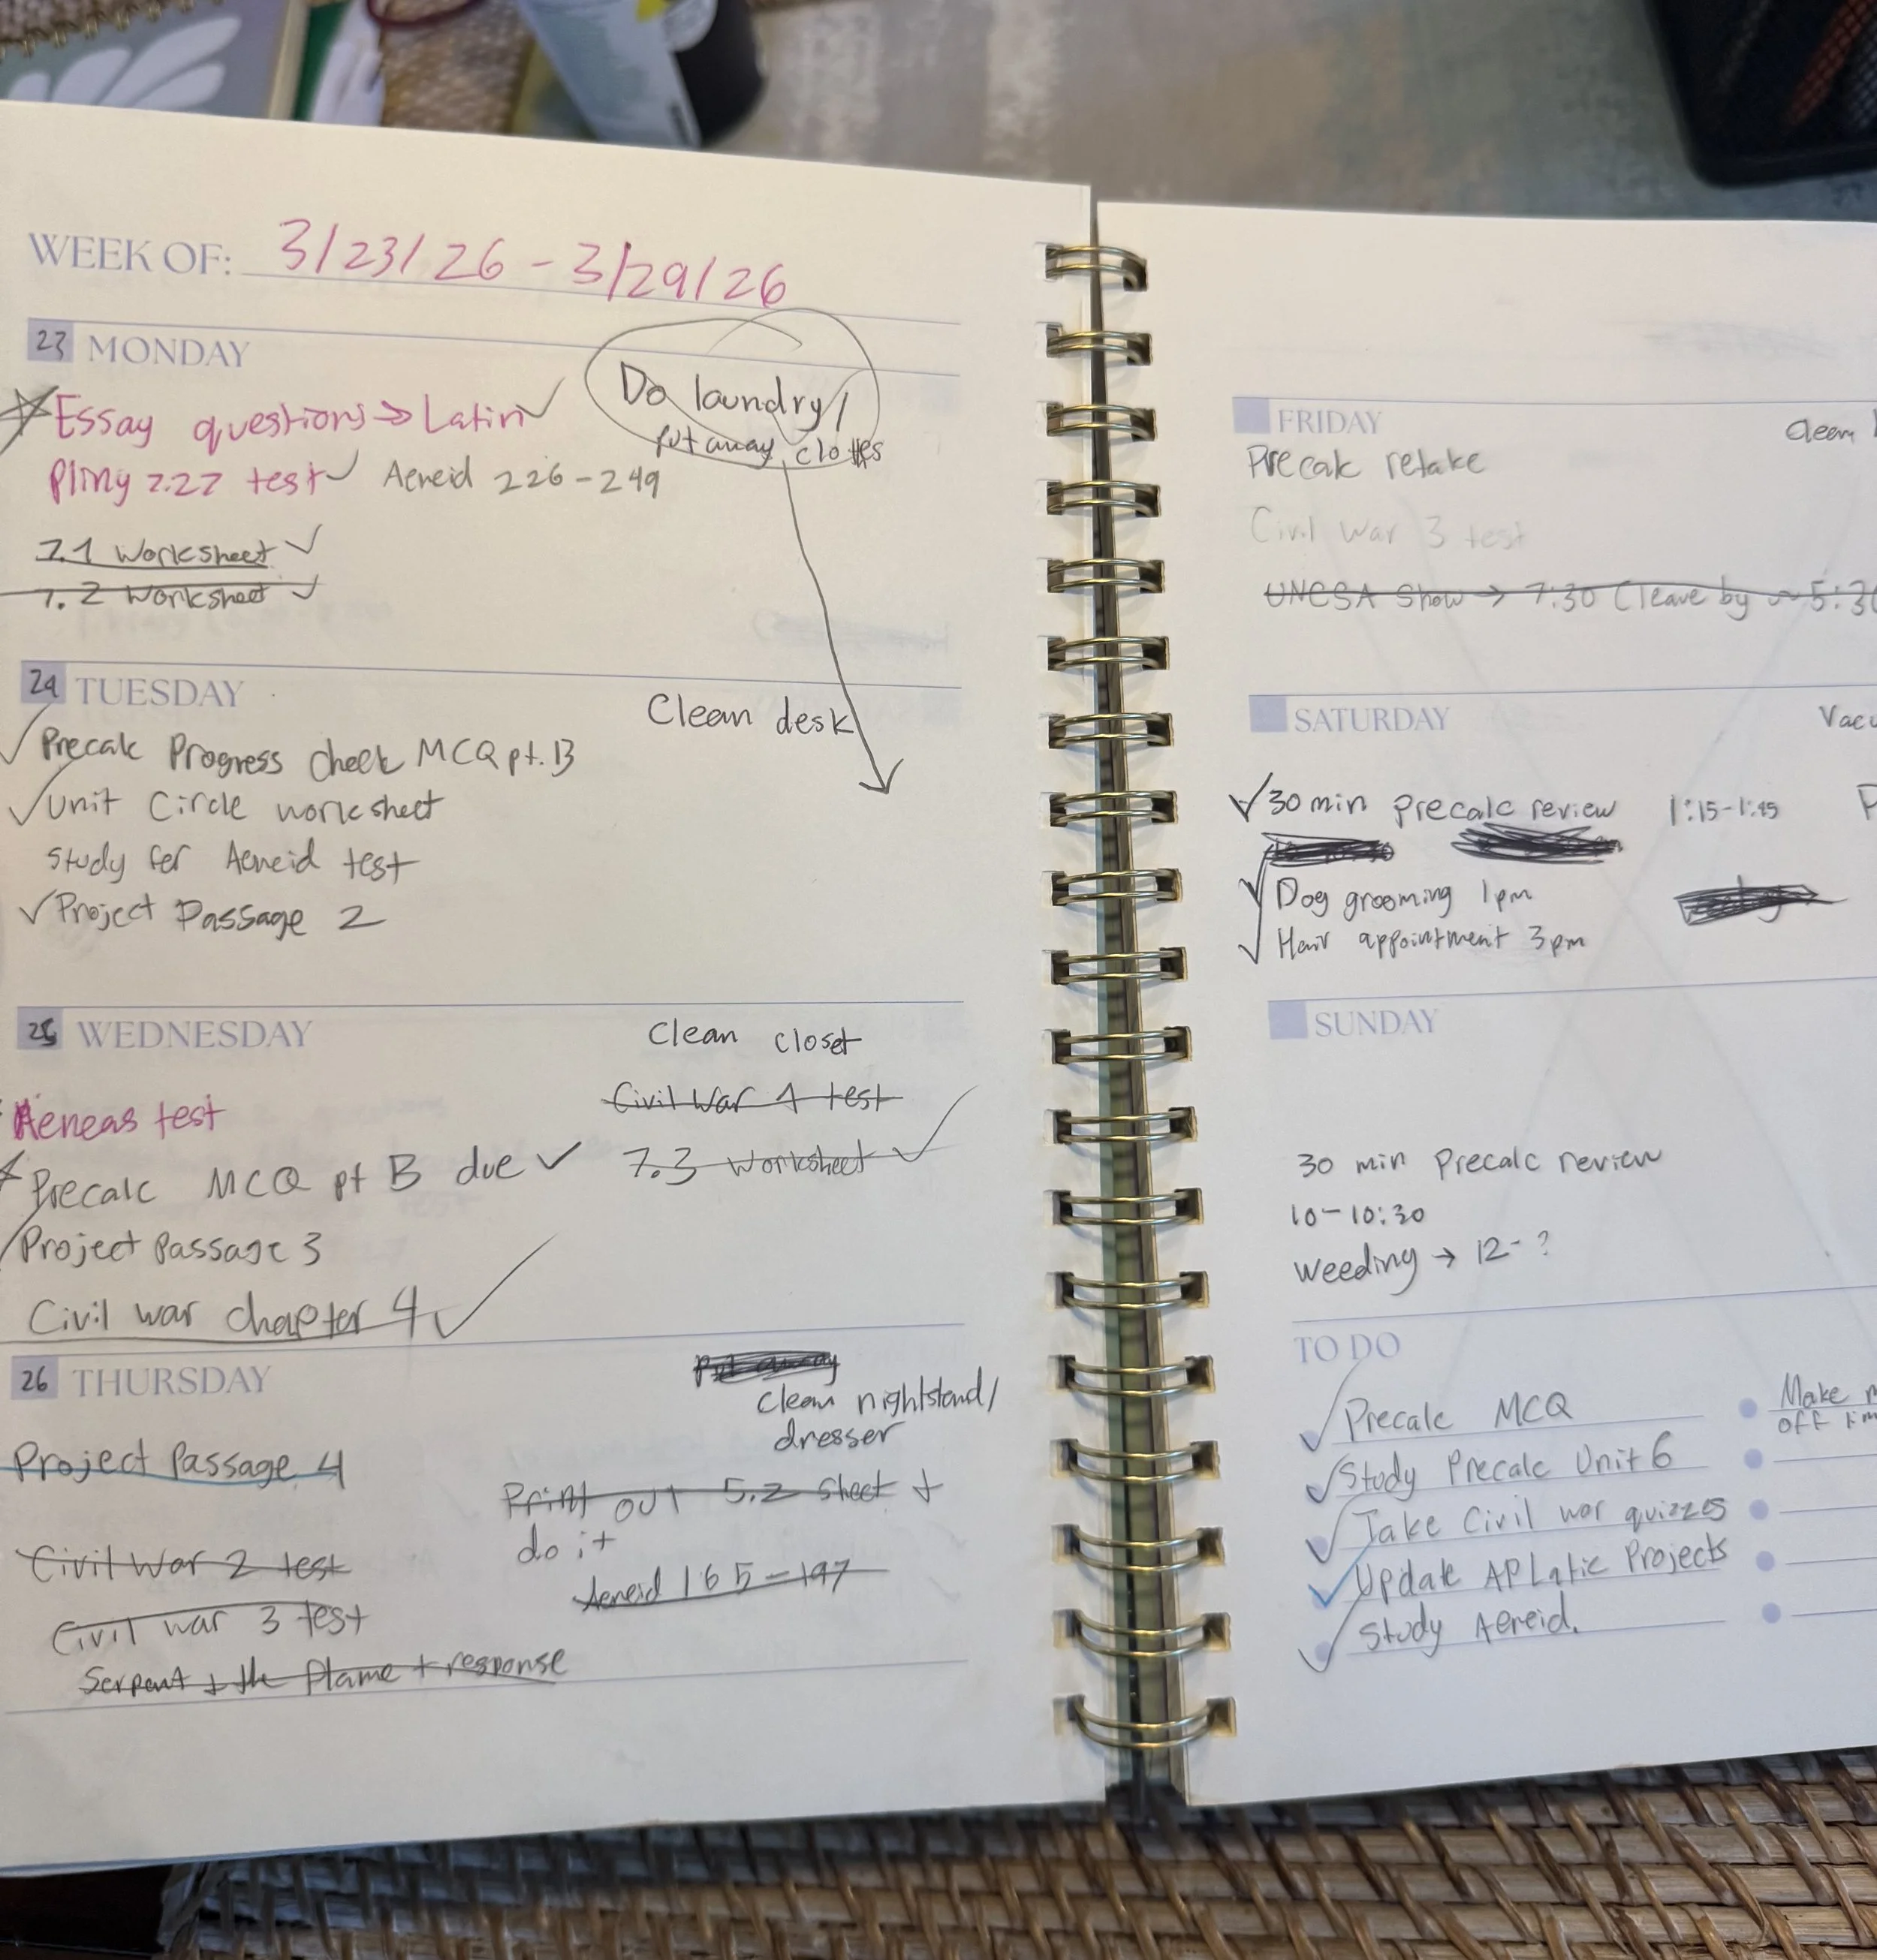 WEEK OF: 3/23/26 - 3/29/26
23 MONDAY
Essay questions → Latin
Do laundry/
put away clothes
Pliny 7.27 test Aeneid 226-249
7.1 Worksheet
7.2 Worksheet
24 TUESDAY
Clean desk
Precalc Progress check MCQ pt. B
Unit Circle worksheet
Study for Aeneid test
Project Passage 2
25 WEDNESDAY
Clean closet
Aeneas test
Civil War 1 test
Precalc MCQ pt B due
7.3 Worksheet
Project Passage 3
Civil war chapter 4
26 THURSDAY
Put away
Clean nightstand/
dresser
Project Passage 4
Print out 5.2 sheet +
do it
Civil War 2 test
Aeneid 165-197
Civil war 3 test
Serpent + the flame + response
FRIDAY
Clean
Precalc retake
Civil War 3 test
UNCSA Show → 7:30 (leave by ~ 5:30
SATURDAY
Vacu
30 min precalc review 1:15-1:45 P
Dog grooming 1pm
Hair appointment 3pm
SUNDAY
30 min Precalc review
10-10:30
Weeding → 12-?
TO DO
Precalc MCQ
Make
off
Study Precalc Unit 6
Take Civil war quizzes
Update AP Latic Projects
Study Aeneid.